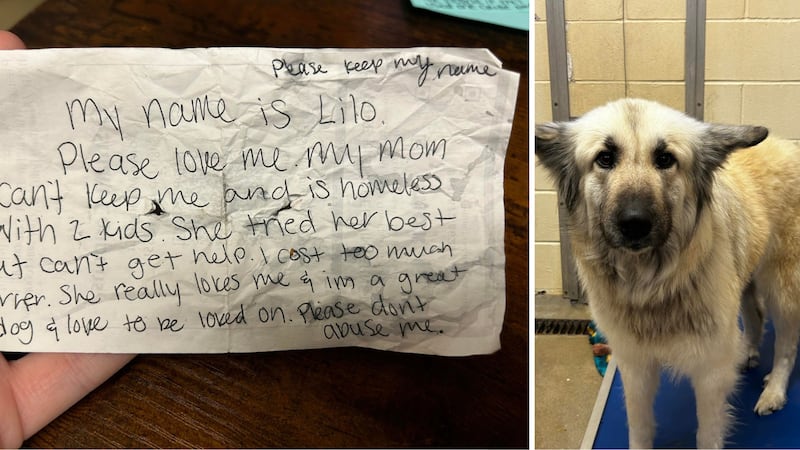 Please keep my name
My name is Lilo.
Please love me. My Mom
can't keep me and is homeless
with 2 kids. She tried her best
but can't get help. I cost too much
her. She really loves me & im a great
dog & love to be loved on. Please don't
abuse me.